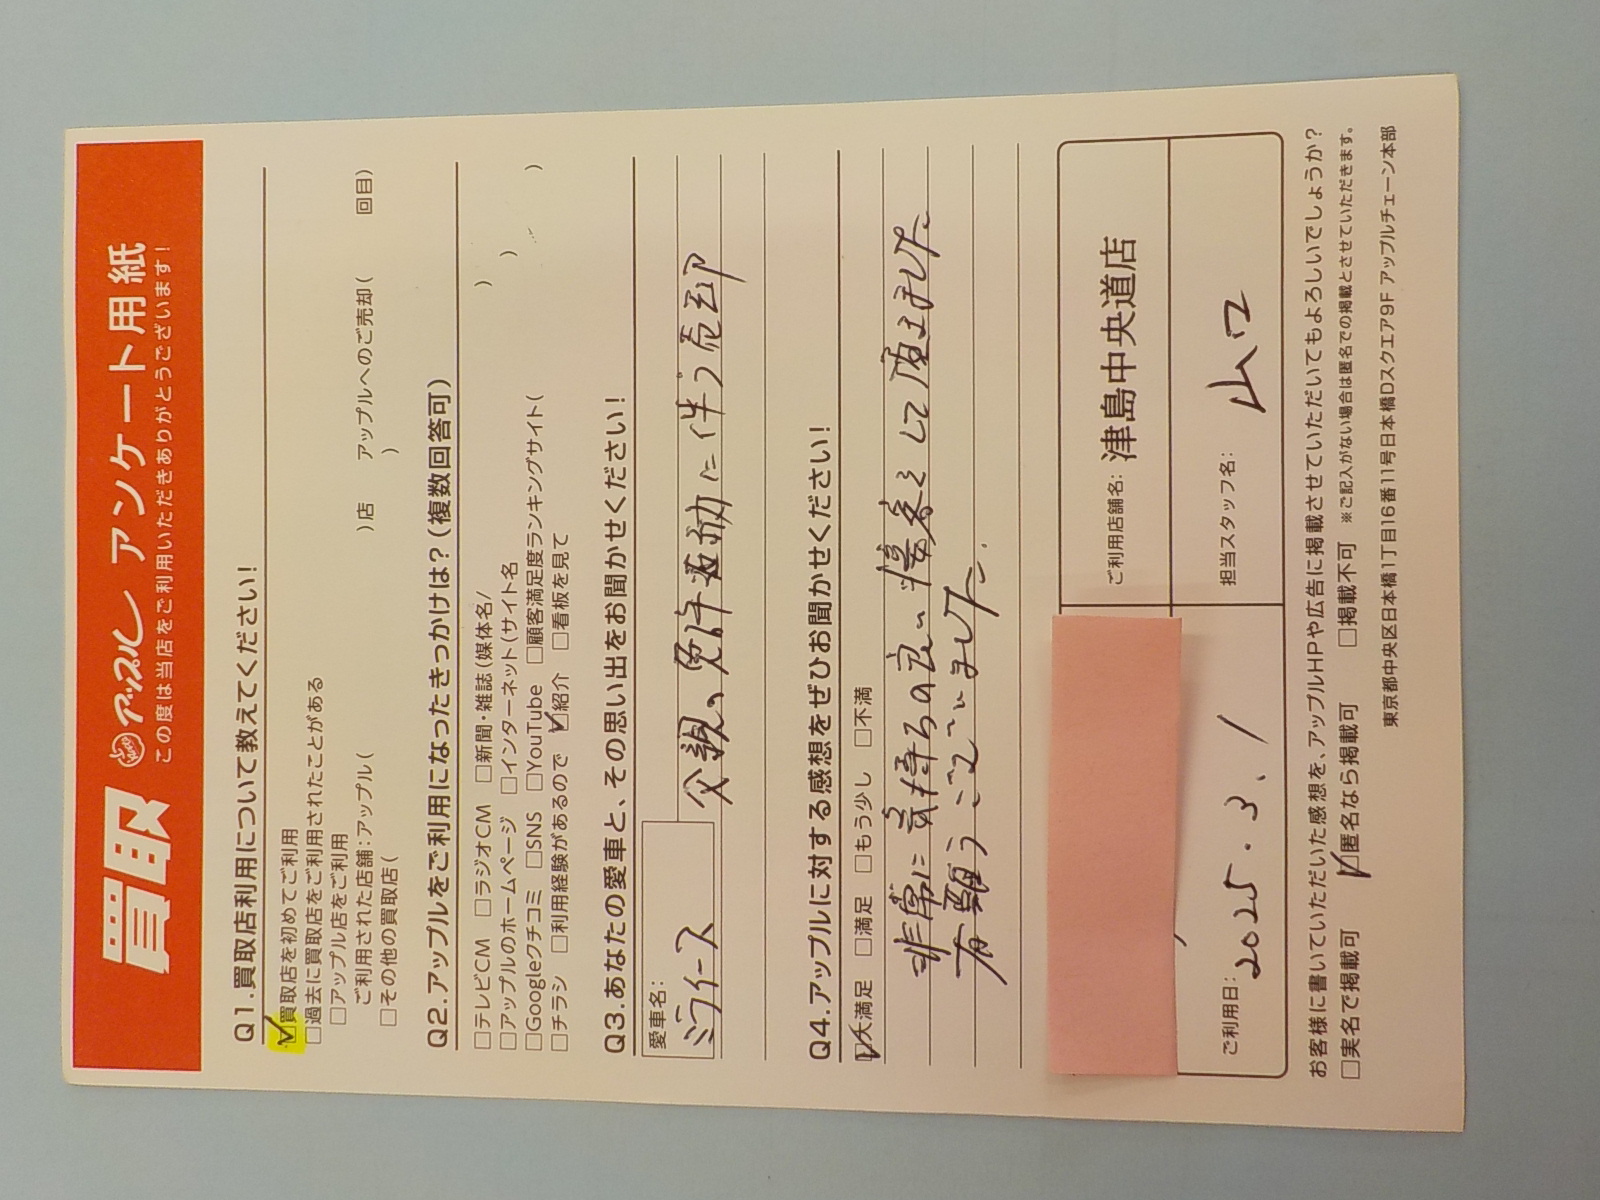 買取 アップル アンケート用紙
この度は当店をご利用いただきありがとうございます！
Q1.買取店利用について教えてください！
☑買取店を初めてご利用
□過去に買取店をご利用されたことがある
□アップル店をご利用
ご利用された店舗：アップル（　　　）店　アップルへのご売却（　　回目）
□その他の買取店（　　　）
Q2.アップルをご利用になったきっかけは？（複数回答可）
□テレビCM □ラジオCM □新聞・雑誌（媒体名/　　　）
□アップルのホームページ □インターネット（サイト名　　　）
□Googleクチコミ □SNS □YouTube □顧客満足度ランキングサイト（　　　）
□チラシ □利用経験があるので ☑紹介 □看板を見て
Q3.あなたの愛車と、その思い出をお聞かせください！
愛車名：
ミライース
父親の免許返納に伴う売却
Q4.アップルに対する感想をぜひお聞かせください！
☑大満足 □満足 □もう少し □不満
非常に気持ちの良い接客をして頂きました
有難うございました.
ご利用店舗名：津島中央道店
ご利用日：2025.3.1
担当スタッフ名：山口
お客様に書いていただいた感想を、アップルHPや広告に掲載させていただいてもよろしいでしょうか？
□実名で掲載可 ☑匿名なら掲載可 □掲載不可 ※ご記入がない場合は匿名での掲載とさせていただきます。
東京都中央区日本橋1丁目16番11号日本橋Dスクエア9F アップルチェーン本部